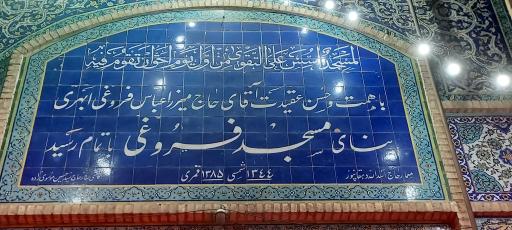 لمسجد اسس علی التقوی من اول یوم احق ان تقوم فیه
با همت و حسن عقیدت آقای حاج میرزا عباس فروغی ابهری
بنای مسجد فروغی باتمام رسید
معمار حاج اسدالله دهقانپور ۱۳۴۴ شمسی ۱۳۸۵ قمری